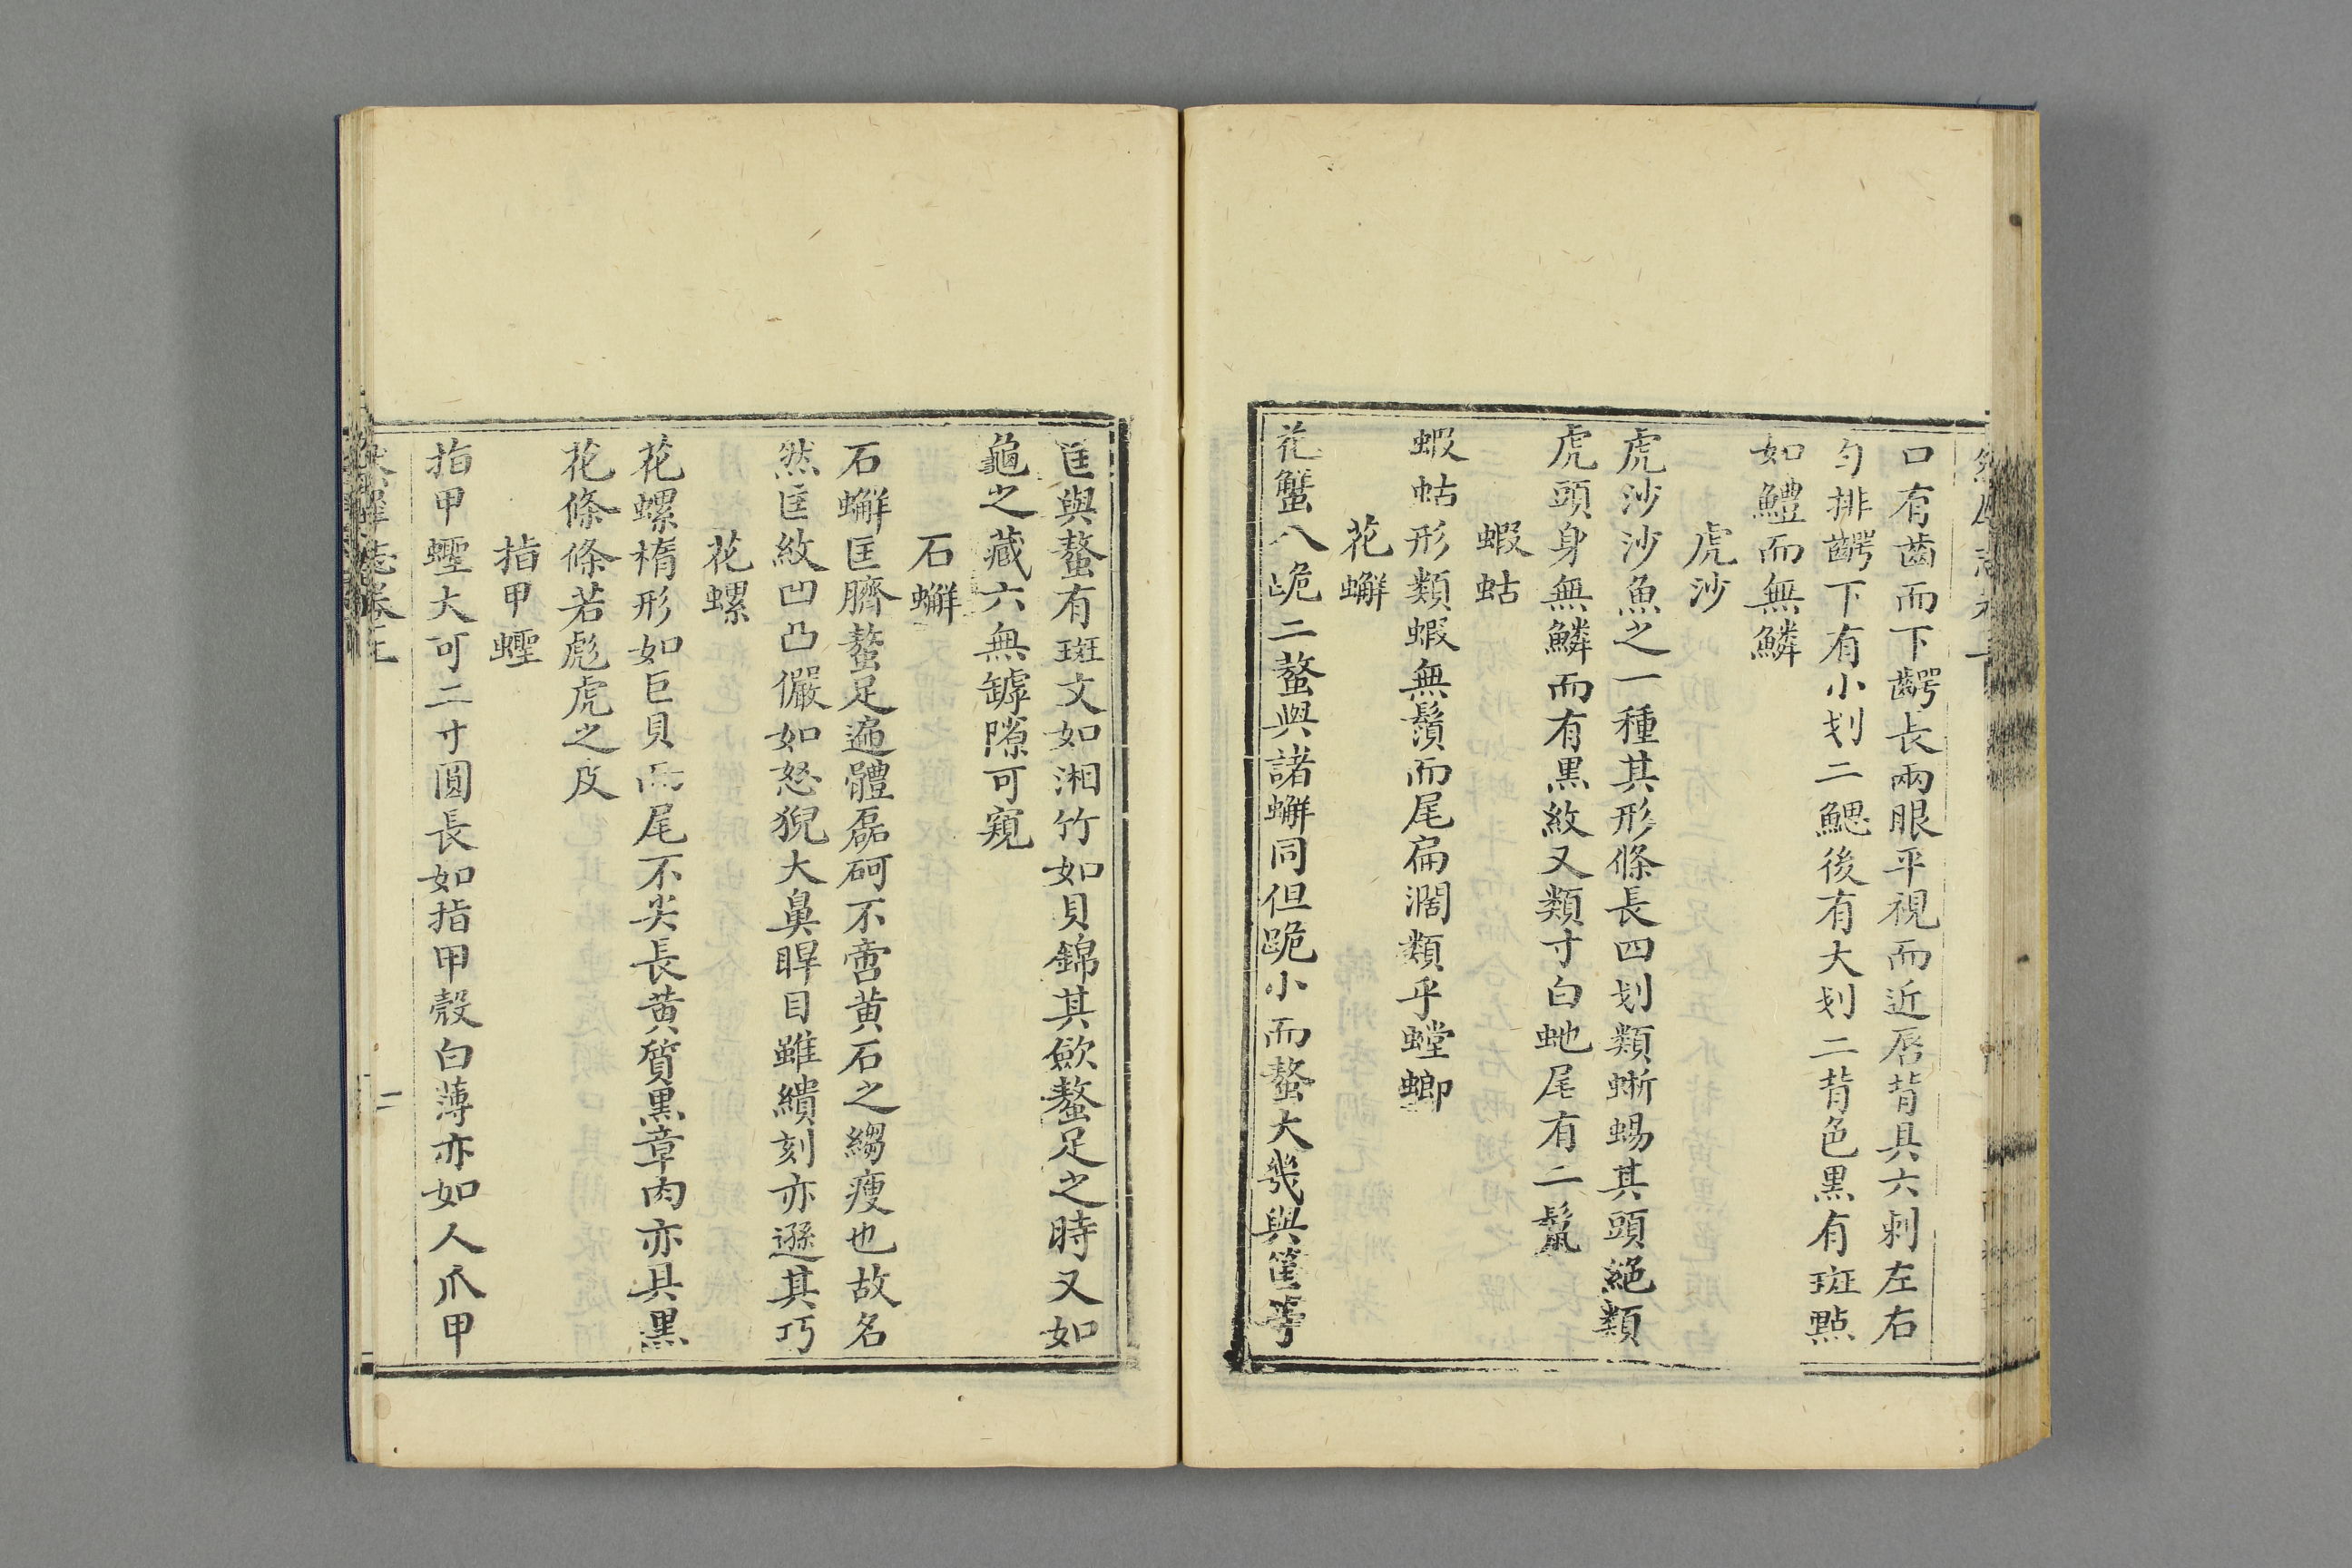 口有齒而下齶長兩眼平視而近唇背具六刺左右
勻排齶下有小划二鰓後有大划二背色黒有斑點
如鱧而無鱗
虎沙
虎沙沙魚之一種其形條長四划類蜥蜴其頭絕類
虎頭身無鱗而有黒紋又類寸白虵尾有二鬣
蝦蛄
蝦蛄形類蝦無鬚而尾扁濶類乎螳螂
花蠏
花蟹八跪二螯與諸蠏同但跪小而螯大幾與筐等
匡與螯有斑文如湘竹如貝錦其歛螯足之時又如
龜之藏六無罅隙可窺
石蠏
石蠏匡臍螯足遍體磊砢不啻黄石之縐瘦也故名
然匡紋凹凸儼如怒猊大鼻睅目雖繢刻亦遜其巧
花螺
花螺楕形如巨貝而尾不尖長黄質黒章肉亦具黒
花條條若彪虎之皮
指甲蟶
指甲蟶大可二寸圓長如指甲殼白薄亦如人爪甲
二